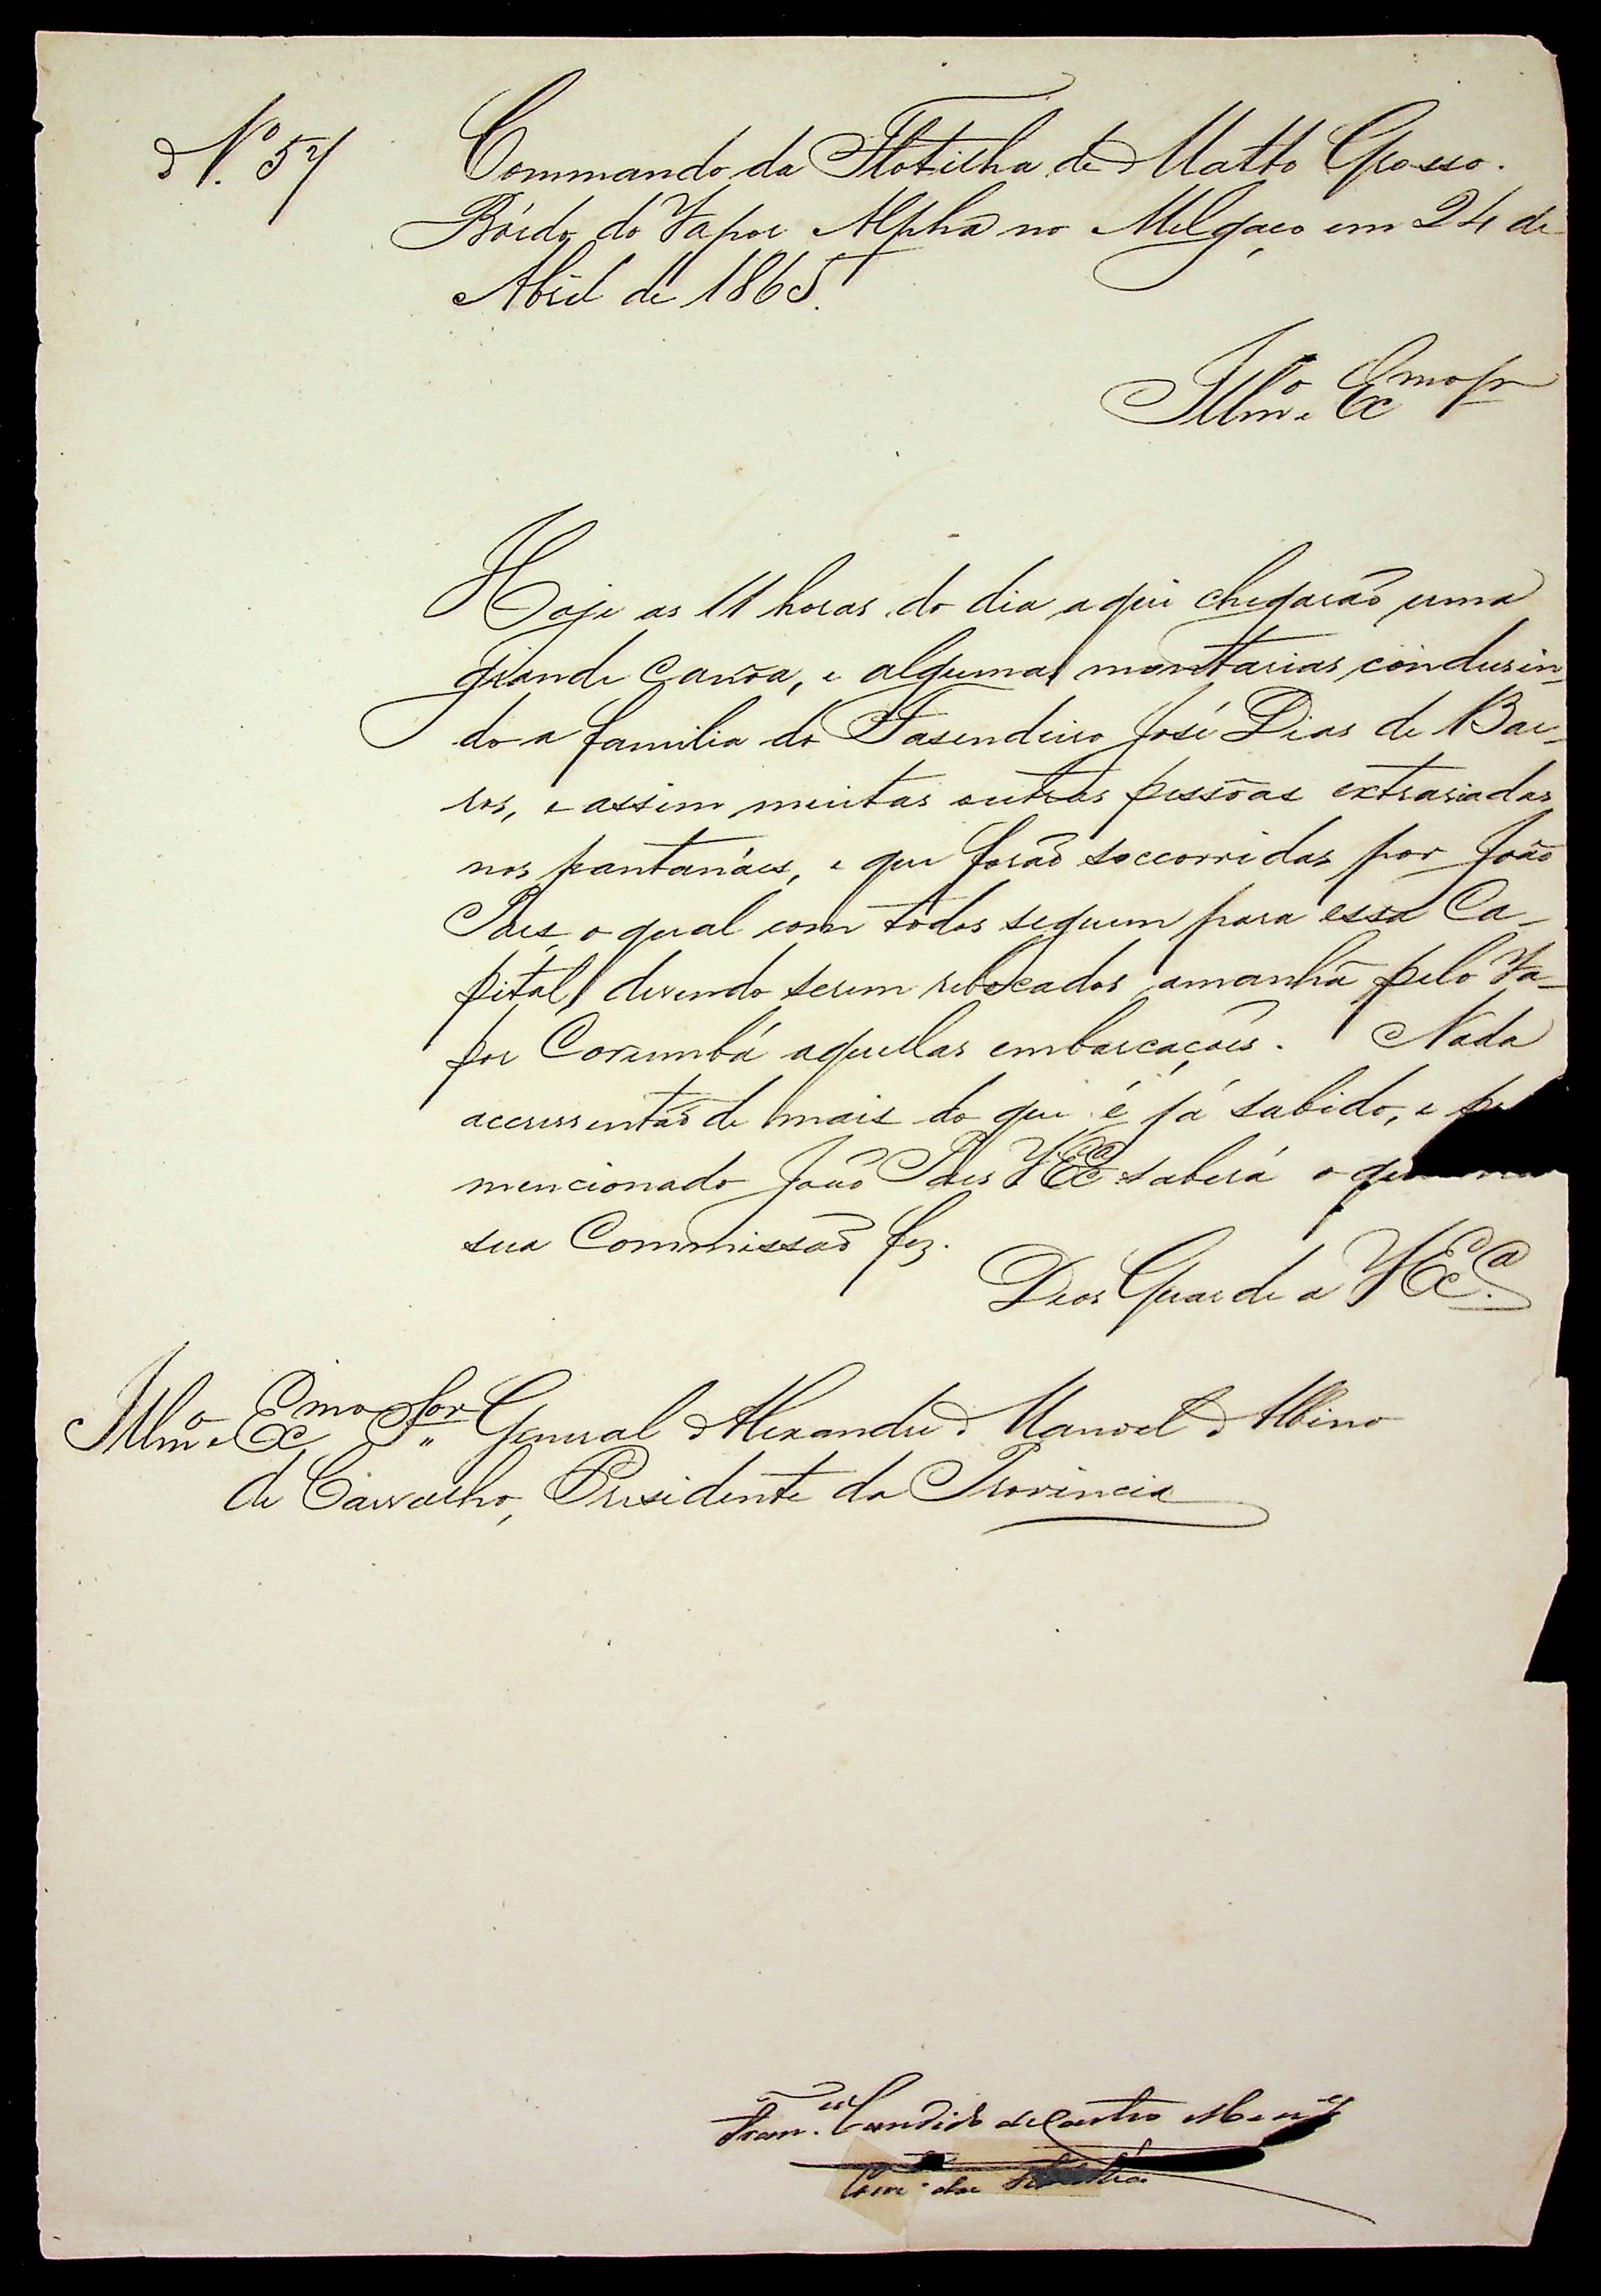 N.º 57
Commando da Flotilha de Matto Grosso.
Bórdo do Vapor Alpha no Melgaço em 24 de
Abril de 1865.
Illmº e Exmo Sr
Hoje as 11 horas do dia aqui chegarão uma
grande canôa, e algumas montarias condusin,
do a familia do Fasendeiro José Dias de Bar,
ros, e assim muitas outras pessôas extraviadas
nos pantanáes, e que forão soccorridas por João
Paes, o qual com todos seguem para essa Ca-
pital, devendo serem rebocados amanhã pelo Va-
por Corumbá aquellas embarcações. Nada
accressentão de mais do que é já sabido, e
mencionado João Paes VEXª saberá o que
sua Commissão fez.
Deos Guarde a VEXª
Illmº e Exmo Snor General Alexandre Manoel Albino
de Carvalho, Presidente da Provincia
Franco Candido de Castro Menes
Come da